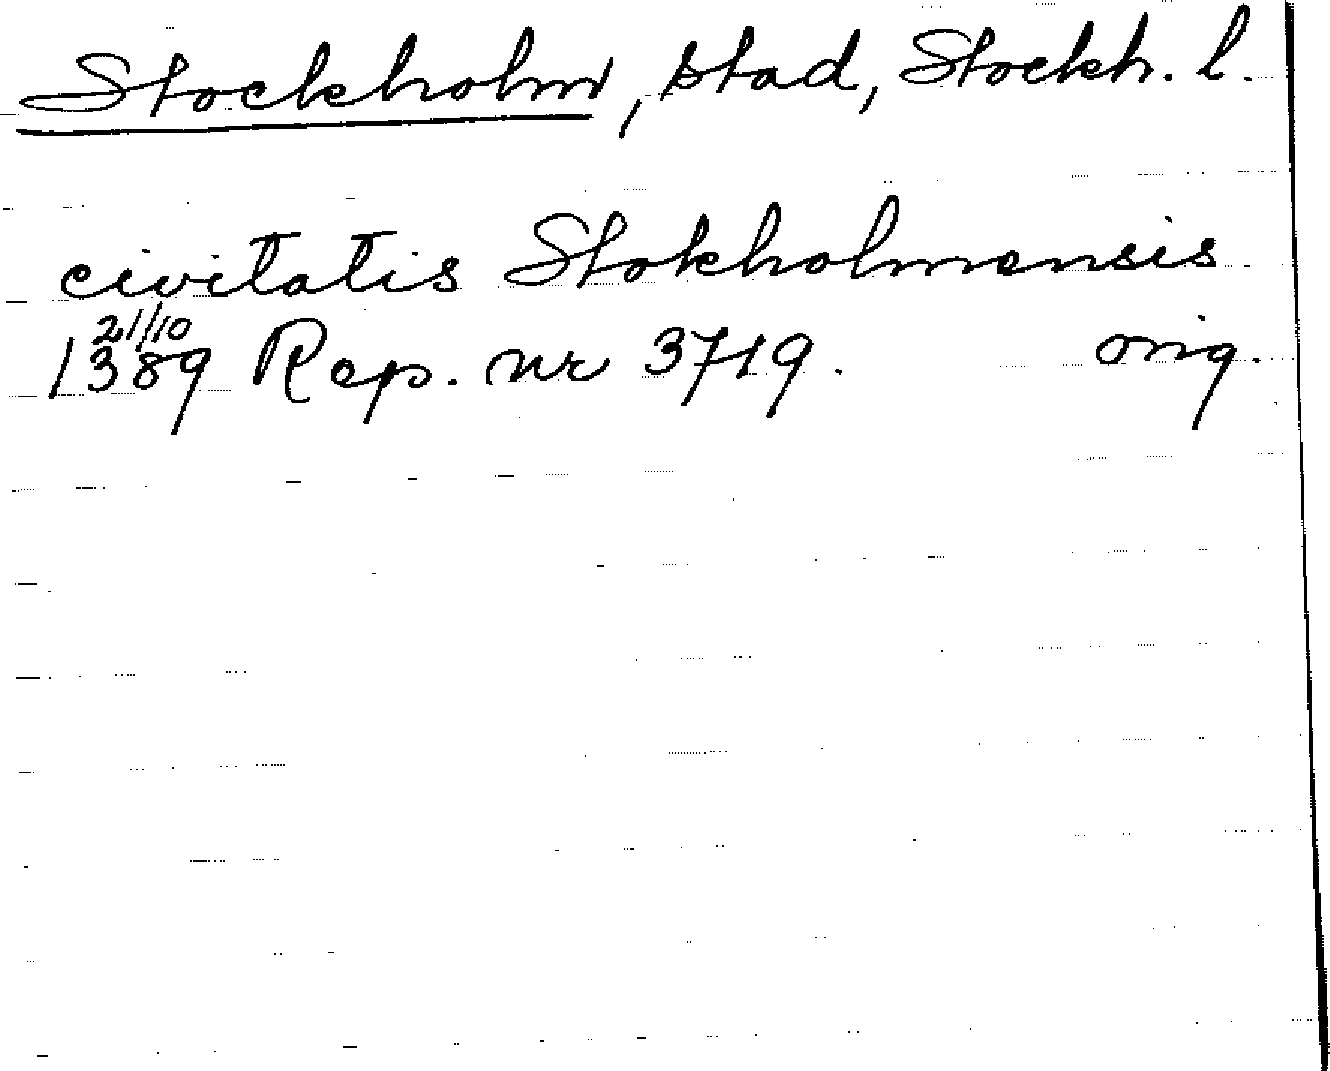 Stockholm, stad, Stockh. l.
civitatis Stokholmensis
21/10
1389 Rep. nr 3719. orig.